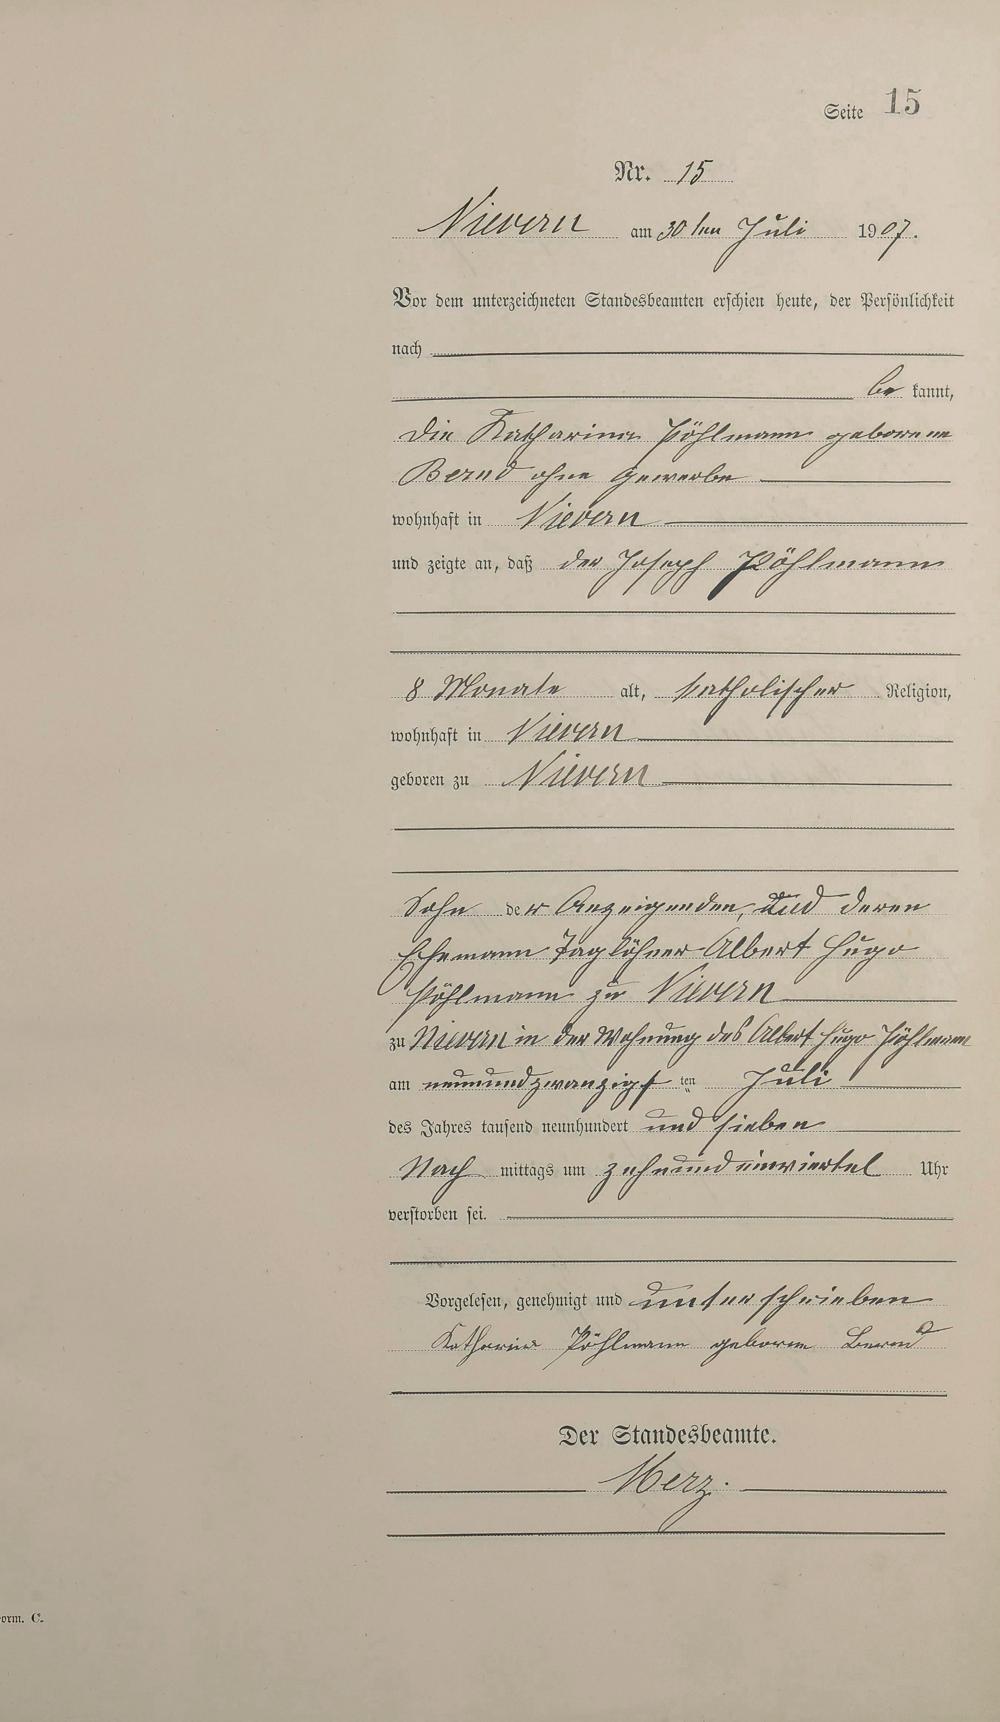 Seite 15
Nr. 15
Nievern am 30ten Juli 1907.
Vor dem unterzeichneten Standesbeamten erschien heute, der Persönlichkeit
nach
be kannt,
die Katharina Pöhlmann geborene
Bernd ohne Gewerbe
wohnhaft in Nievern
und zeigte an, daß der Joseph Pöhlmann
8 Monate alt, katholischer Religion,
wohnhaft in Nievern
geboren zu Nievern
Sohn der Anzeigenden, und deren
Ehemann Taglöhner Albert Hugo
Pöhlmann zu Nievern
zu Nievern in der Wohnung des Albert Hugo Pöhlmann
am neunundzwanzigsten Juli
des Jahres tausend neunhundert und sieben
Nach mittags um zehnundeinviertel Uhr
verstorben sei.
Vorgelesen, genehmigt und unterschrieben
Katharina Pöhlmann geborene Bernd
Der Standesbeamte.
Merz.
orm. C.